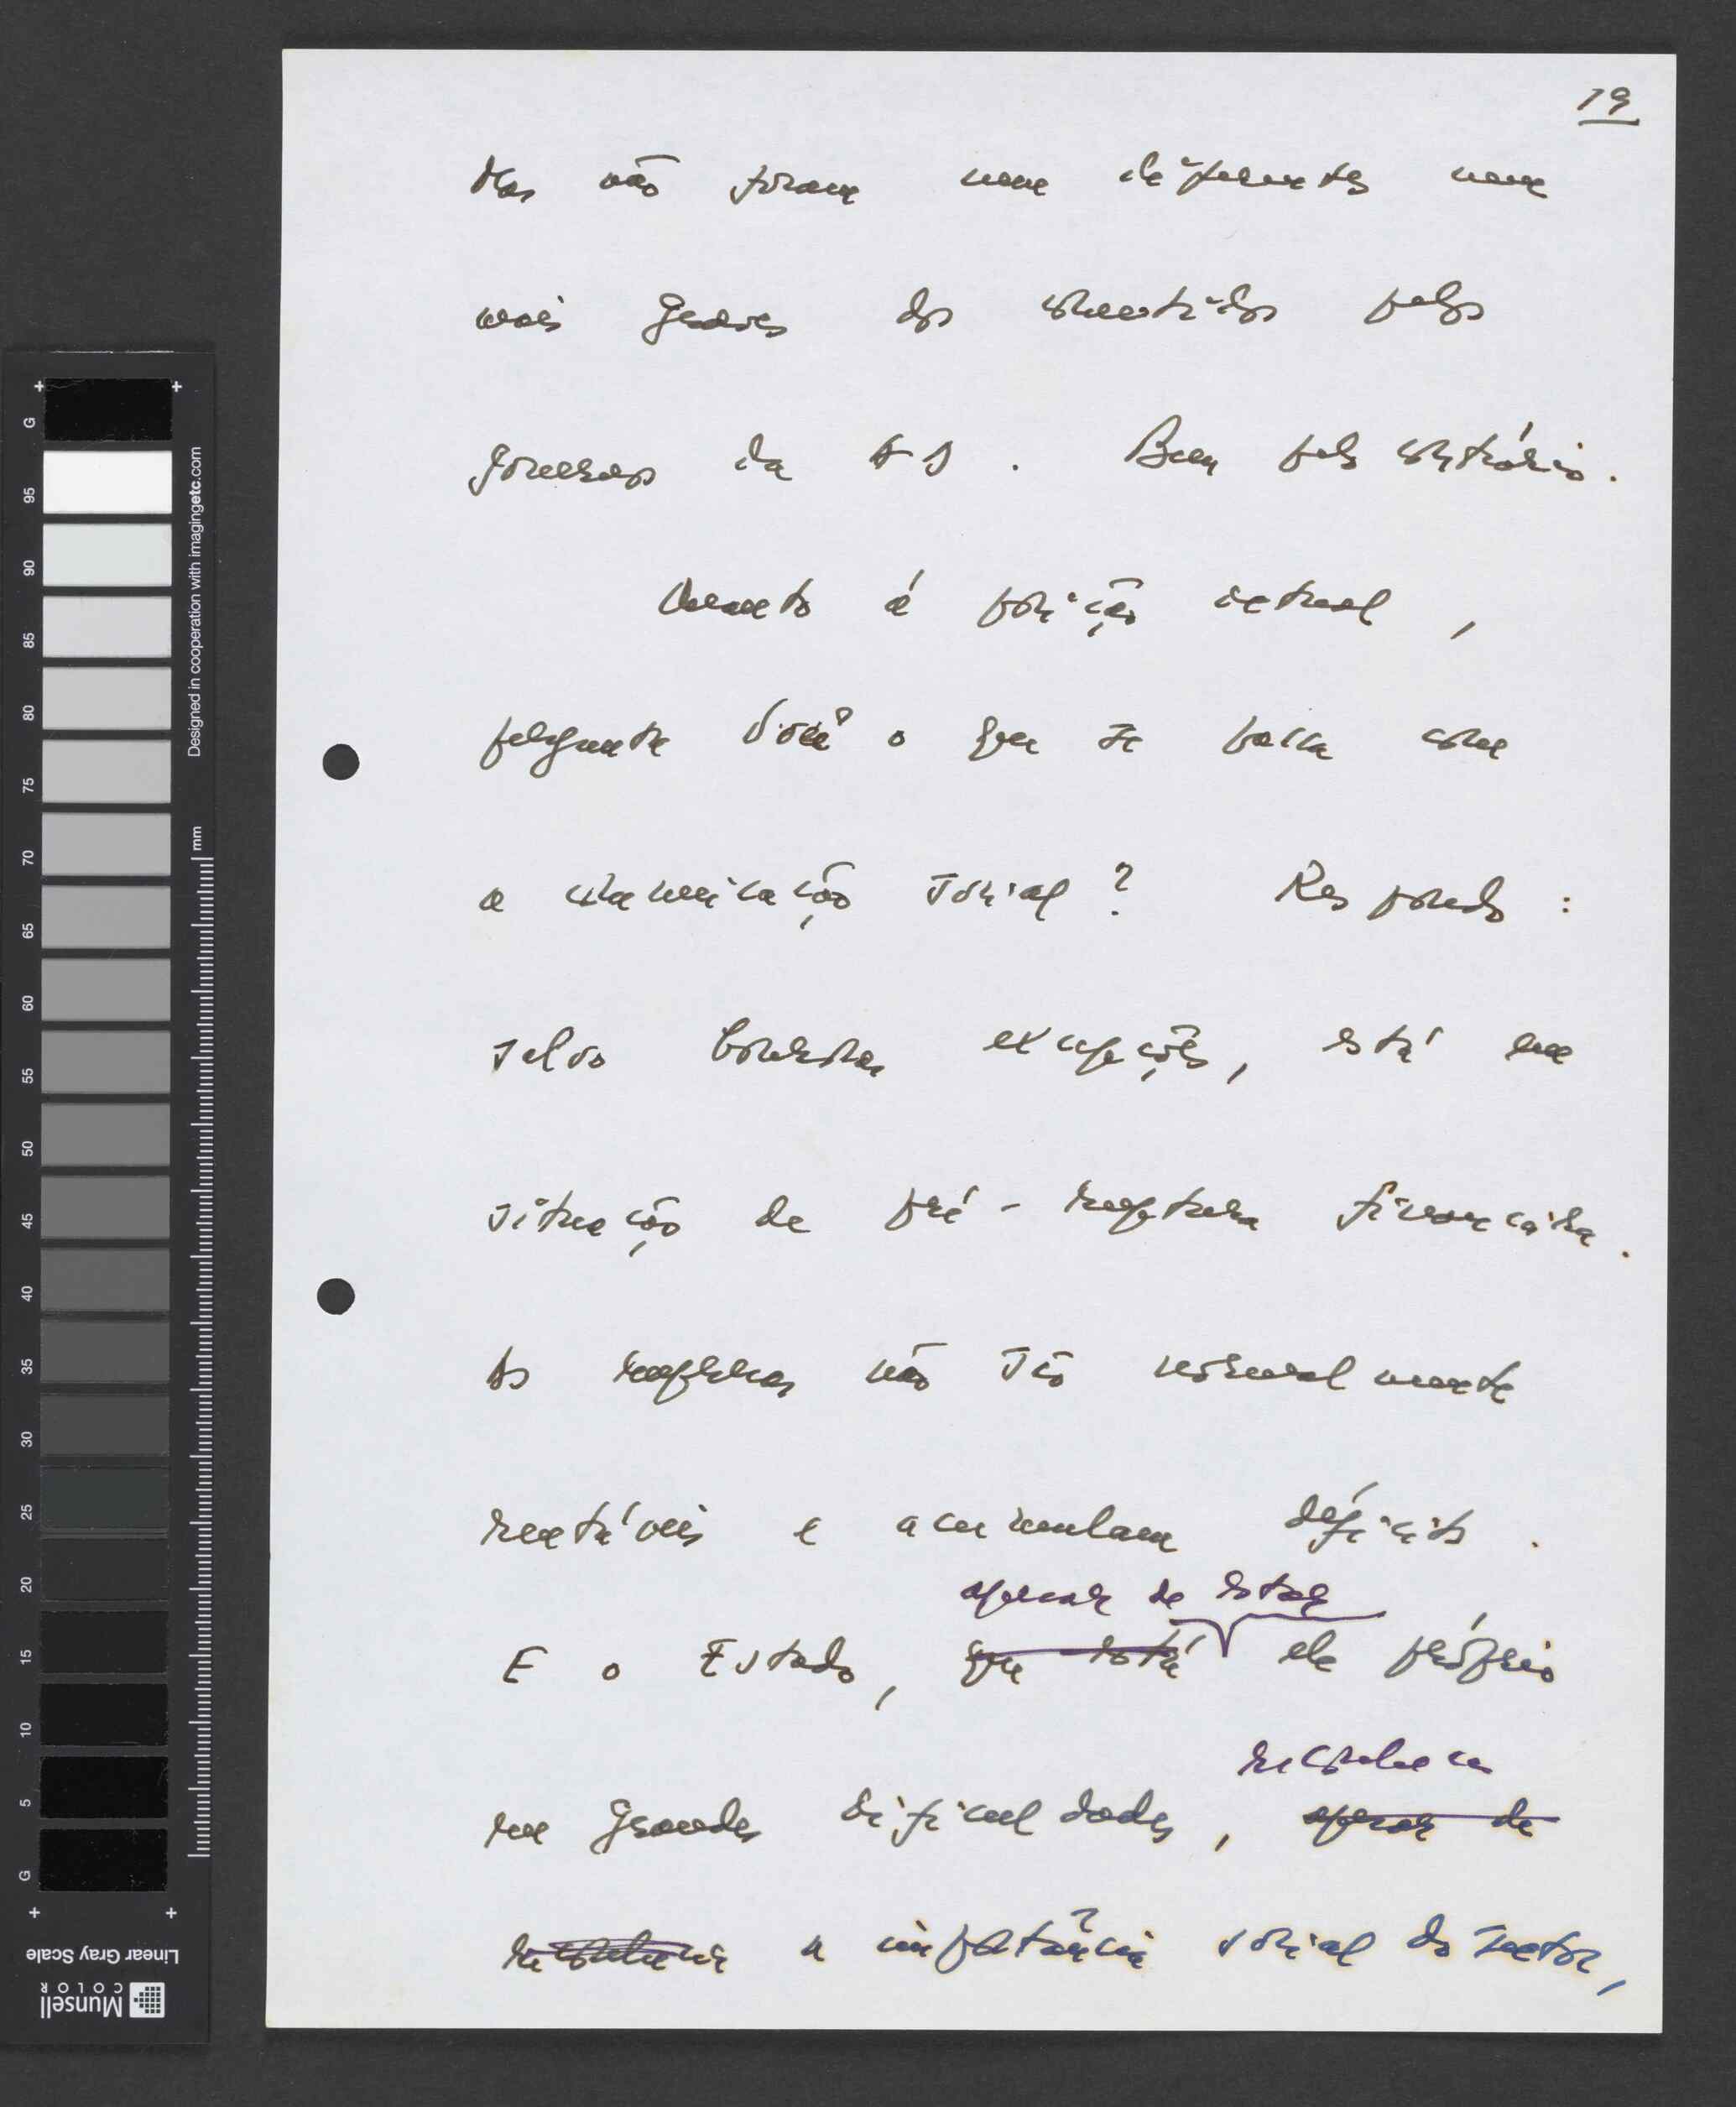 19
Mas não foram nem diferentes nem
mais graves dos cometidos pelos
governos da AD. Bem pelo contrário.
Quanto à posição actual,
pergunta Você o que se passa com
a comunicação social? Respondo:
salvo honrosas excepções, está em
situação de pré-ruptura financeira.
As empresas não são normalmente
rentáveis e acumulam déficits.
apesar de estar
E o Estado, que está ele próprio
reconhecer
em grandes dificuldades, apesar de
reconhecer a importância social do sector,
G
95
90
85
80
75
70
65
60
55
50
45
40
35
30
25
20
15
10
5
G
mm
Designed in cooperation with imagingetc.com
Linear Gray Scale
Munsell
COLOR